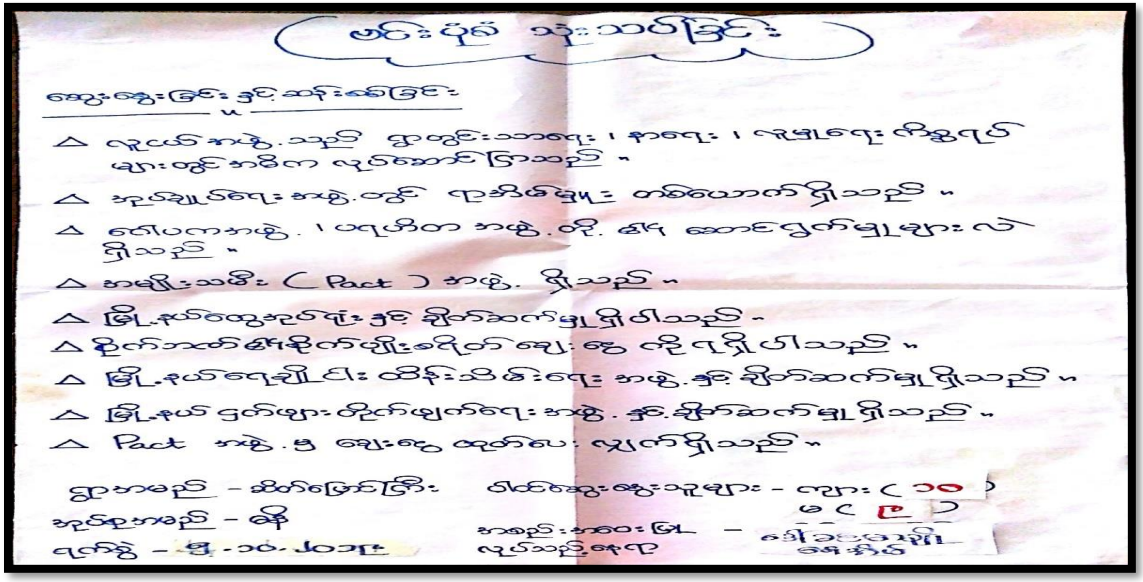 ဗင်းပုံစံ သုံးသပ်ခြင်း
ဆွေးနွေးခြင်းနှင့်ဆန်းစစ်ခြင်း
△ လူငယ်အဖွဲ့သည် ရွာတွင်းသာရေး၊ နာရေး၊ လူမှုရေးကိစ္စရပ်
များတွင်အဓိက လုပ်ဆောင်ကြသည်။
△ အုပ်ချုပ်ရေးအဖွဲ့တွင် ရာအိမ်မှူး တစ်ယောက်ရှိသည်။
△ ဂေါပကအဖွဲ့၊ ပရဟိတ အဖွဲ့တို့၏ ဆောင်ရွက်မှုများလဲ
ရှိသည်။
△ အမျိုးသမီး ( Pact ) အဖွဲ့ ရှိသည်။
△ မြို့နယ်ထွေအုပ်ရုံးနှင့် ချိတ်ဆက်မှုရှိပါသည်။
△ စိုက်ဘဏ်၏စိုက်ပျိုးစရိတ်ချေးငွေ ကိုရရှိပါသည်။
△ မြို့နယ်ရေချိုငါး ထိန်းသိမ်းရေး အဖွဲ့နှင့် ချိတ်ဆက်မှုရှိသည်။
△ မြို့နယ် ငှက်ဖျား တိုက်ဖျက်ရေးအဖွဲ့နှင့်ချိတ်ဆက်မှုရှိသည်။
△ Pact အဖွဲ့မှ ချေးငွေ ထုတ်ပေးလျှက်ရှိသည်။
ရွာအမည် - ဆိတ်မြောင်ကြီး ပါဝင်ဆွေးနွေးသူများ - ကျား ( ၁၀ )
မ ( ၉ )
အုပ်စုအမည် - ဓနိ အစည်းအဝေးပြု -
ရက်စွဲ - ၅.၁၀.၂၀၁၉ လုပ်သည့်နေရာ နေအိမ်